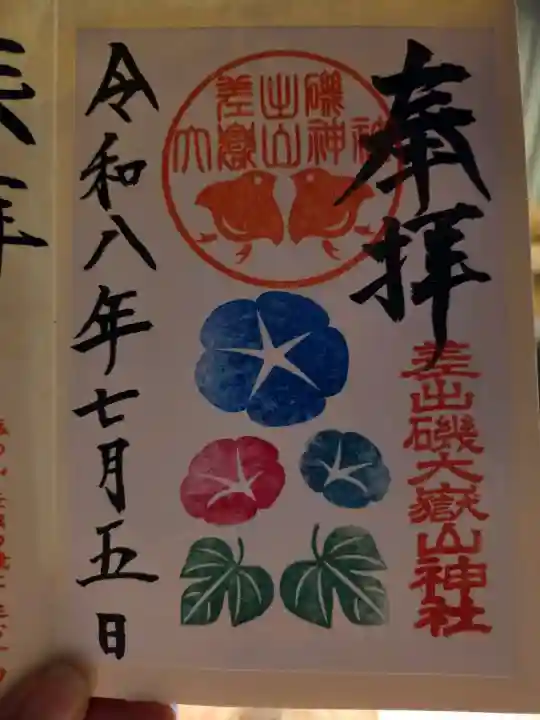 奉拝
差出磯大嶽山神社
差出磯
大嶽山神社
令和八年七月五日